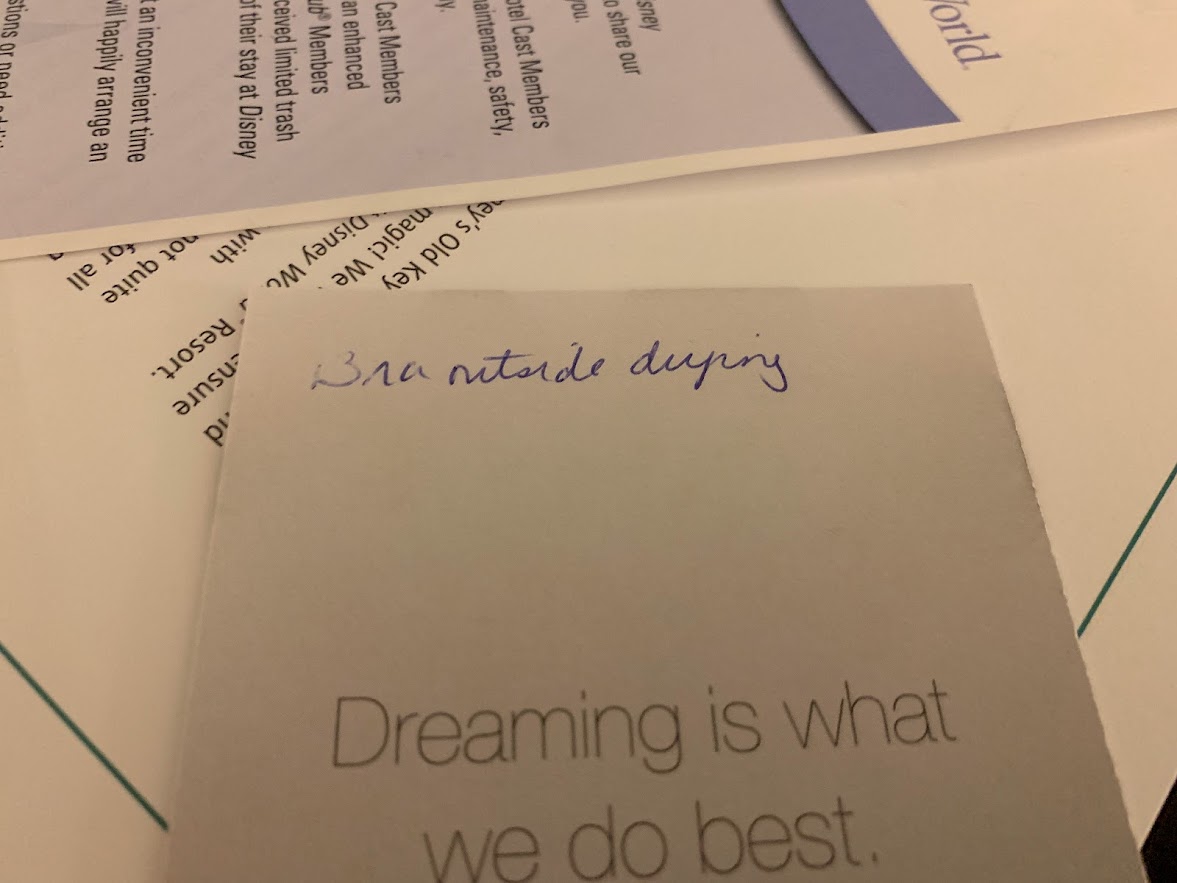 World
sney
o share our
you.
otel Cast Members
aintenance, safety,
y.
Cast Members
an enhanced
ub® Members
ceived limited trash
of their stay at Disney
an inconvenient time
will happily arrange an
stions or need
ey's Old Key
magic! We
Disney Wo
with
not quite
for all
Resort.
ensure
Bra outside
Dreaming is what
we do best.